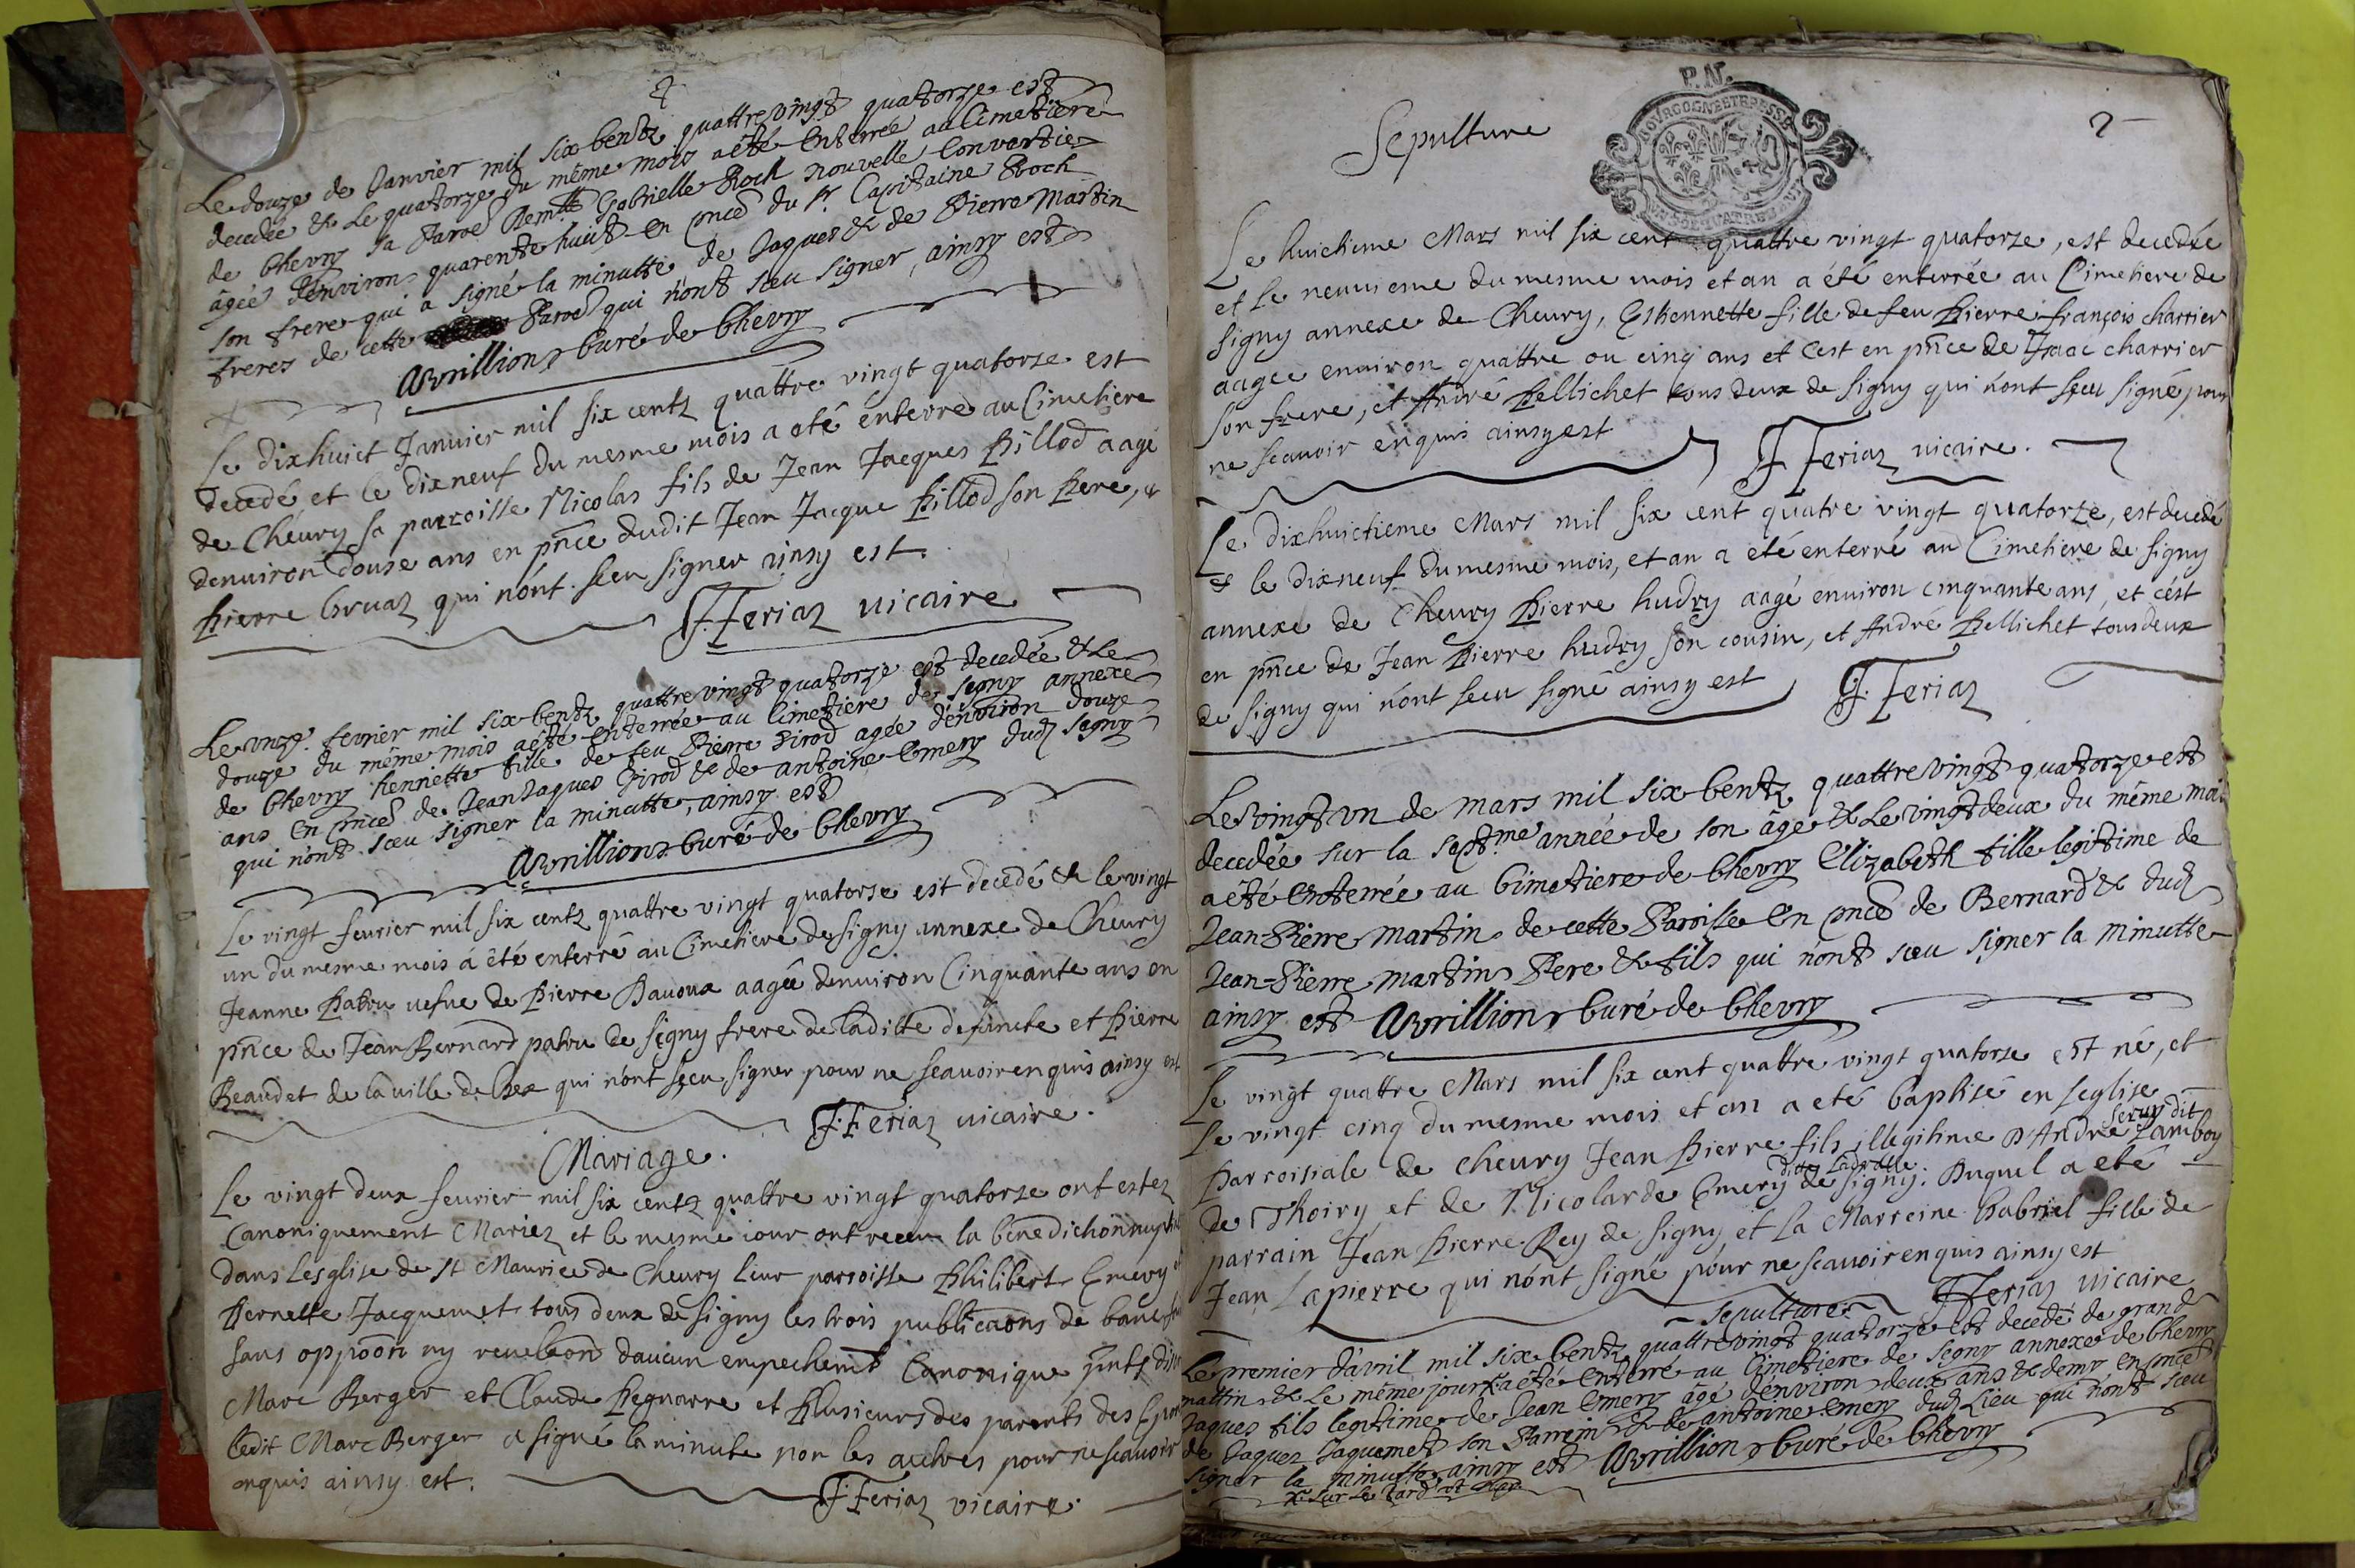 Le douze de Janvier mil six Centz quattre vingt quatorze est
decedée & Le quatorze du même mois a été Enterrée au Cimetiere
de Chevry sa Paroe Demlle Gabrielle Roch nouvelle Convertie
âgée d'environ quarente huict en pnce du Sr. Capitaine Roch
son frere qui a signé la minutte, de Jaques & de Pierre Martin
freres de cette Paroe qui n'ont sceu signer, ainsy est
Avrillion Curé de Chevry
Le dixhuict Janvier mil six centz quattre vingt quatorse est
decedé et le dixneuf du mesme mois a eté enterre au Cimetiere
de Cheury sa parroisse Nicolas fils de Jean Jacques Pillod aagé
denuiron douse ans en pnce dudit Jean Jacque Pillod son Pere, &
Pierre Gruaz qui n'ont sceu signer ainsy est.
F. Feriaz uicaire
Le onze fevrier mil six Centz quattre vingt quatorze est decedée & Le
douze du même mois a été enterrée au Cimetiere de Segny annexe
de Chevry henriette fille de feu Pierre Girod agée d'environ douze
ans En pnce de Jean Jaques Girod & de antoine Emery dud. Segny
qui n'ont sceu signer la minutte, ainsy est
Avrillion Curé de Chevry
Le vingt feurier mil six centz quattre vingt quatorse est decedé & le vingt
un du mesme mois a été enterré au Cimetiere de signy annexe de Cheury
Jeanne Patru uefue de Pierre Dauoux aagée denuiron Cinquante ans en
pnce de Jean Bernard patru de signy frere de laditte defuncte et Pierre
Beaudet de la uille de Gex qui n'ont sceu signer pour ne scauoir enquis ainsy est
F. Feriaz uicaire.
Mariage.
Le vingt deux feurier mil six centz quattre vingt quatorse ont estez
Canoniquement Mariez et le mesme iour ont receu la benediction nuptial
dans Lesglise de St Maurice de Cheury leur parroisse Philibert Emery
Pernette Jacquemet tous deux de signy les trois publicaons de bancs
sans oppoon ny reuelaon d'aucun empechemt Canonique pnts
Marc Berger et Claude Pegnarre et Plusieurs des parents des
ledit Marc Berger a signé la minute non les autres pour ne scauoir
enquis ainsy est.
F. Feriaz vicaire.
P.N.
BOVRGOGNE ET BRESSE
2
Sepulture
Le huictieme Mars mil six cent quattre vingt quatorze, est decedée
et le neuuieme du mesme mois et an a été enterrée au Cimetiere de
signy annexe de Cheury, Estiennette fille de feu Pierre françois charrier
aagée enuiron quattre ou cinq ans et c'est en pnce de Isaac charrier
son frere, et André Pellichet tous deux de signy qui n'ont sceu signé pour
ne scauoir enquis ainsy est
F. Feriaz uicaire.
Le dixhuictieme Mars mil six cent quatre vingt quatorze, est decedé
et le dixneuf du mesme mois, et an a eté enterré au Cimetiere de signy
annexe de Cheury Pierre hudry aagé enuiron cinquante ans, et c'est
en pnce de Jean Pierre hudry son cousin, et André Pellichet tous deux
de signy qui n'ont sceu signé ainsy est
F. Feriaz
Le vingt un de mars mil six Centz quattre vingt quatorze est
decedée sur la septme année de son âge & Le vingt deux du même mois
a été Enterrée au Cimetiere de Chevry Elizabeth fille legitime de
Jean-Pierre Martin de cette Paroisse En pnce de Bernard & dud.
Jean-Pierre Martin Pere & fils qui n'ont sceu signer la minutte
ainsy est Avrillion Curé de Chevry
Le vingt quattre Mars mil six cent quattre vingt quatorse est né, et
Le vingt cinq du mesme mois et an a eté baptisé en leglise
Parroissiale de Cheury Jean Pierre fils illegitime d'André seruy dit Lamboy
de Thoiry et de Nicolarde Emery de signy. Auquel a eté
parrain Jean Pierre Rey de signy et la Marreine Gabriel fille de
Jean Lapierre qui n'ont signé pour ne scauoir enquis ainsy est
F. Feriaz uicaire
Sepulture
Le premier d'avril mil six Centz quattre vingt quatorze est decedé de grand
mattin & Le même jour a été Enterré au Cimetiere de Segny annexe de Chevry
Jaques fils legitime de Jean Emery âgé d'environ deux ans & demy en pnce
de Jaques Jaquemet son Parrein & de antoine Emery dud. Lieu qui n'ont sceu
signer la minutte, ainsy est Avrillion Curé de Chevry
sur Le Tard